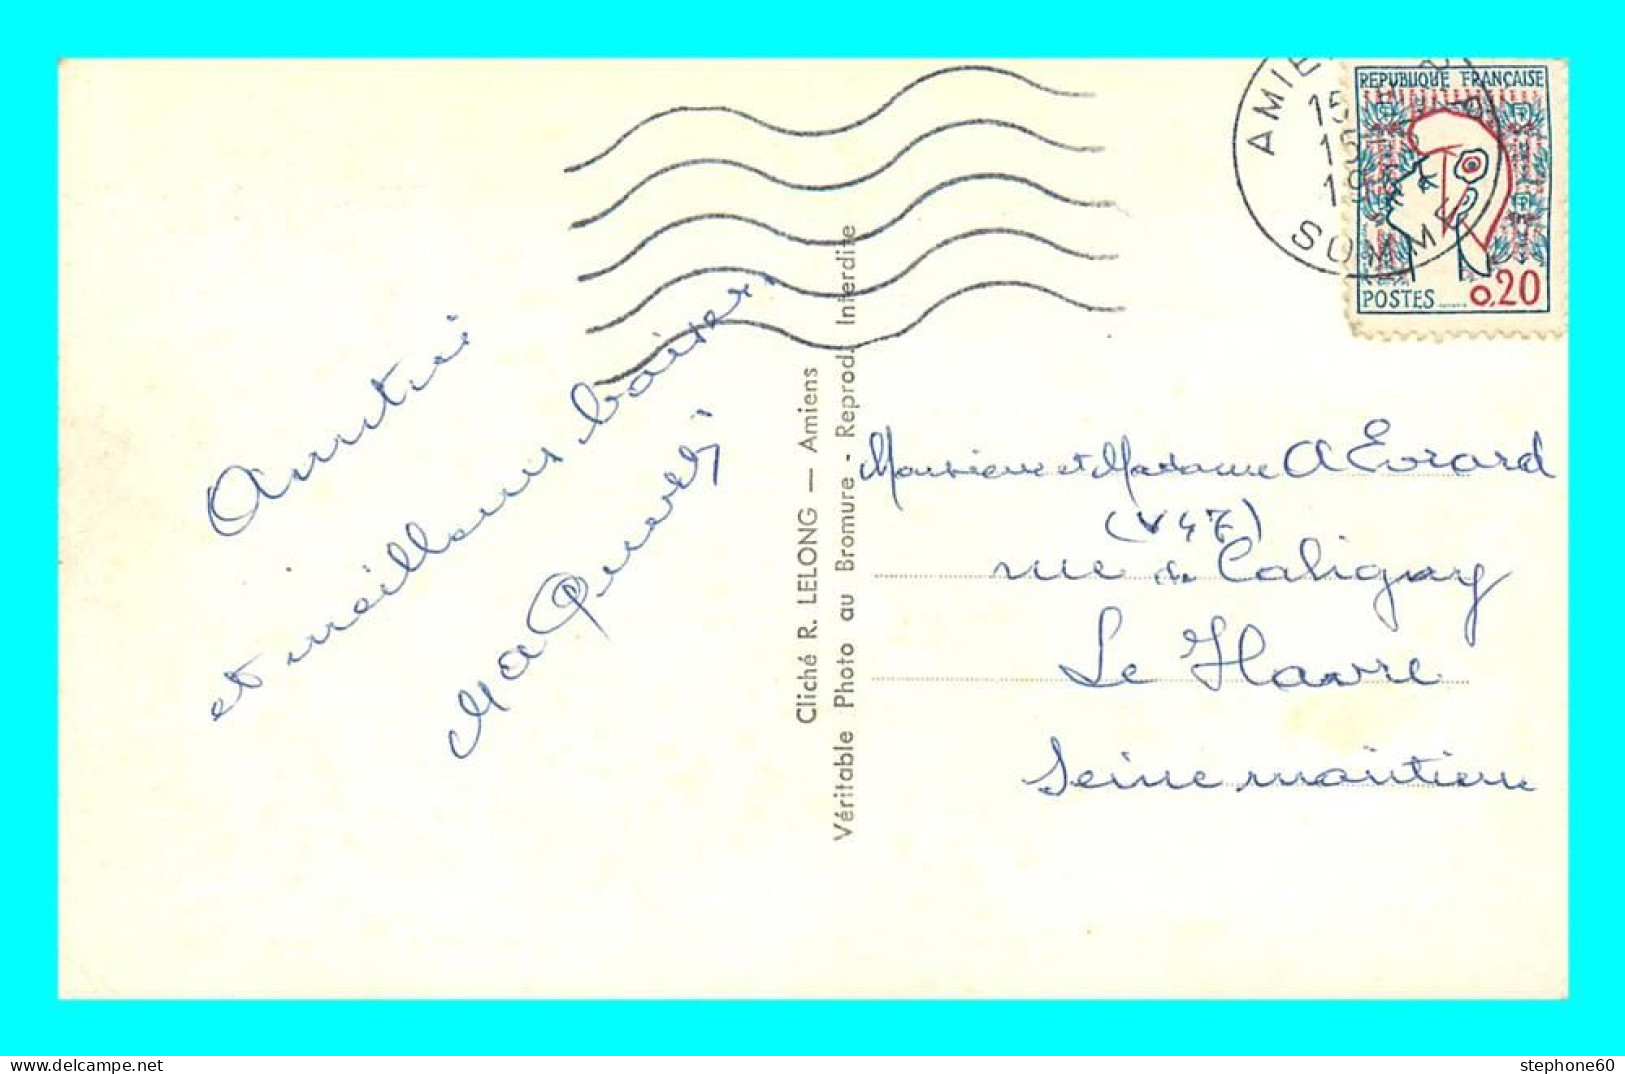 Amitié
et meilleurs baisers.
Cliché R. LELONG — Amiens
Véritable Photo au Bromure - Reprod. Interdite
AMIE
15
15
19
SOMM
REPUBLIQUE FRANÇAISE
POSTES 0,20
Monsieur et Madame A Evrard
(V 47)
rue de Caligny
Le Havre
Seine maritime
stephone60